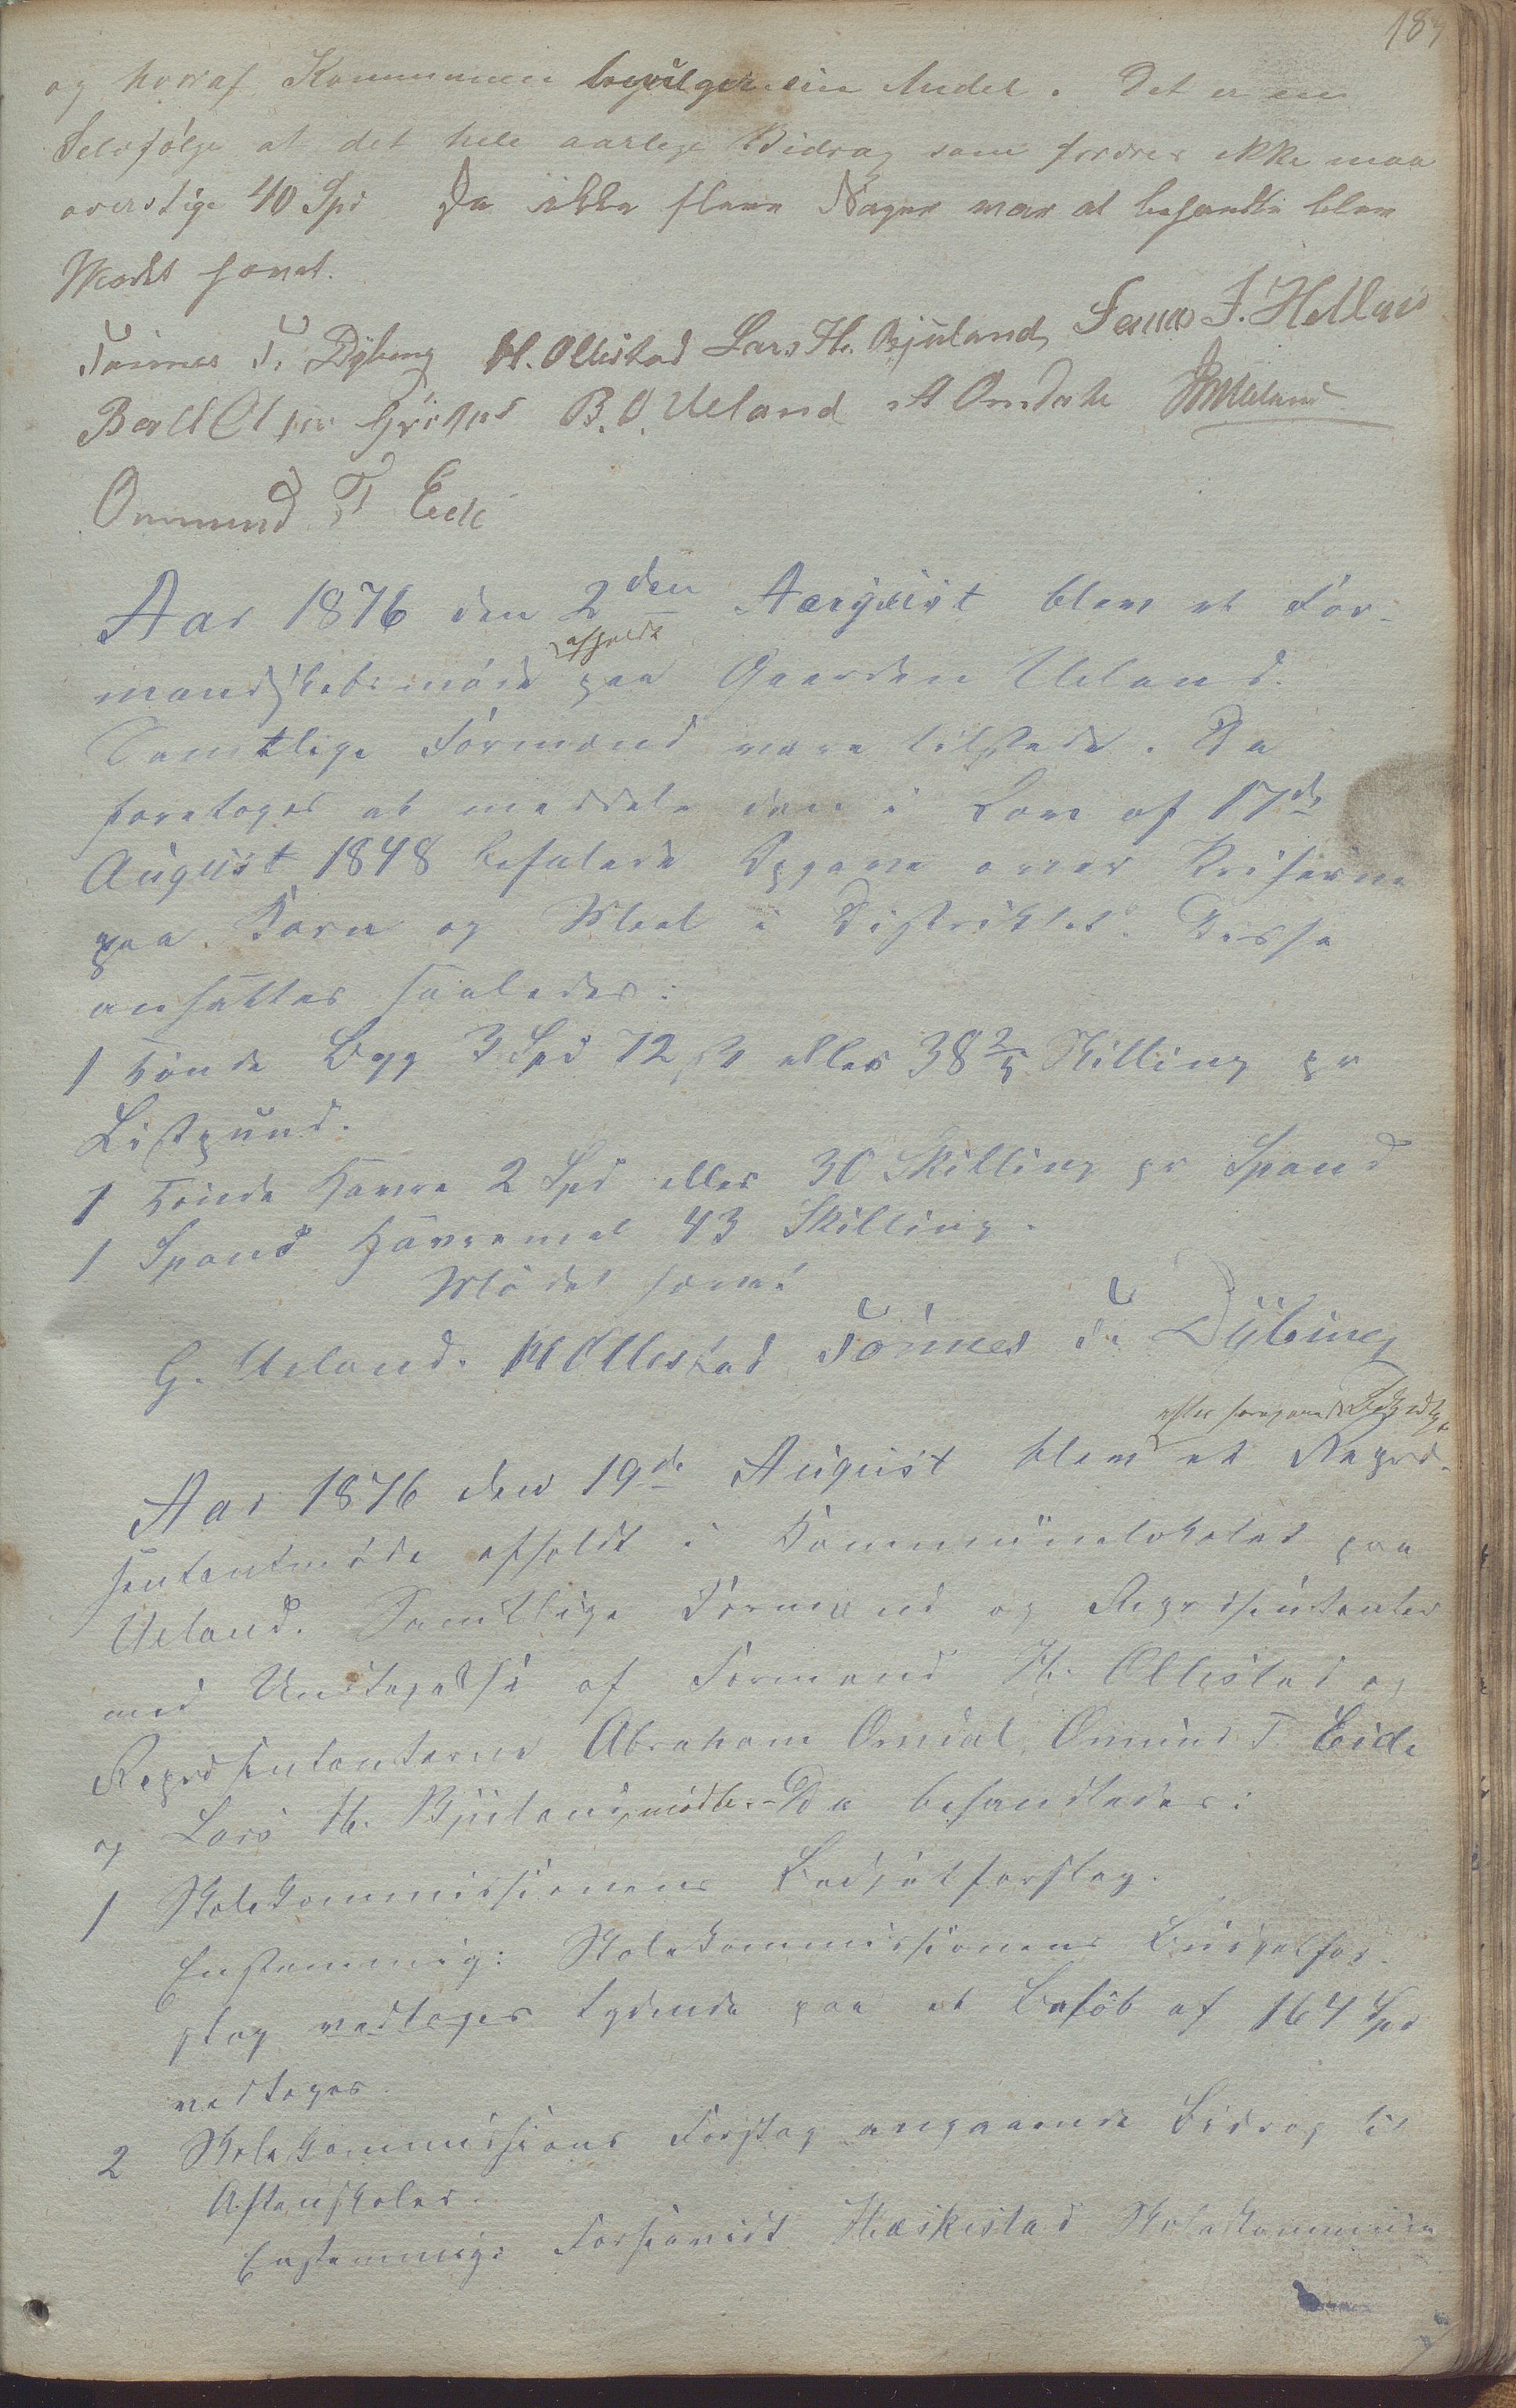 og hvoraf Kommunen bevilger sin Andel. Det er en
Selvfølge at det hele aarlige Bidrag som fordres ikke maa
overstige 40 Spd Da ikke flere Sager var at behandle blev
Mødet hævet.
Tønnes T. Dybing H. Ollestad Lars H. Bjuland, Jonas J. Hellvig
Berll Olsen B. O. Ueland A Omdahl
Ommund T Eide
Aar 1876 den 2den August blev et For-
mandskabsmøde afholdt paa Gaarden Ueland.
Samtlige Formænd vare tilstede. Da
foretoges at meddele den i Lov af 17de
August 1848 befalede Opgave over Priserne
paa Korn og Meel i Distriktet. Disse
ansattes saaledes:
1 Tønde Byg 3 Spd 72 ß eller 38 2/5 Skilling pr
Lispund.
1 Tønde Havre 2 Spd eller 30 Skilling pr Spand
1 Spand Havremel 43 Skilling.
Mødet hævet
G. Ueland. H Ollestad Tønnes T. Dybing
Aar 1876 den 19de August blev efter foregaaende et Repræ-
sentantmøde afholdt i Kommunelokalet paa
Ueland. Samtlige Formænd og Repræsentanter
med Undtagelse af Formand H. Ollestad og
Repræsentanterne Abraham Omdal, Ommund T. Eide
og Lars H. Bjuland, mødte. - Da behandledes:
1 Skolekommissionens Budjetforslag.
Enstemmig: Skolekommissionens Budgetfor-
slag vedtages lydende paa et Beløb af 164 Spd
vedtages.
2 Skolekommissions Forslag angaaende Bidrag til
Aftenskoler.
Enstemmig: Forsaavidt Heskestad Skolekommission